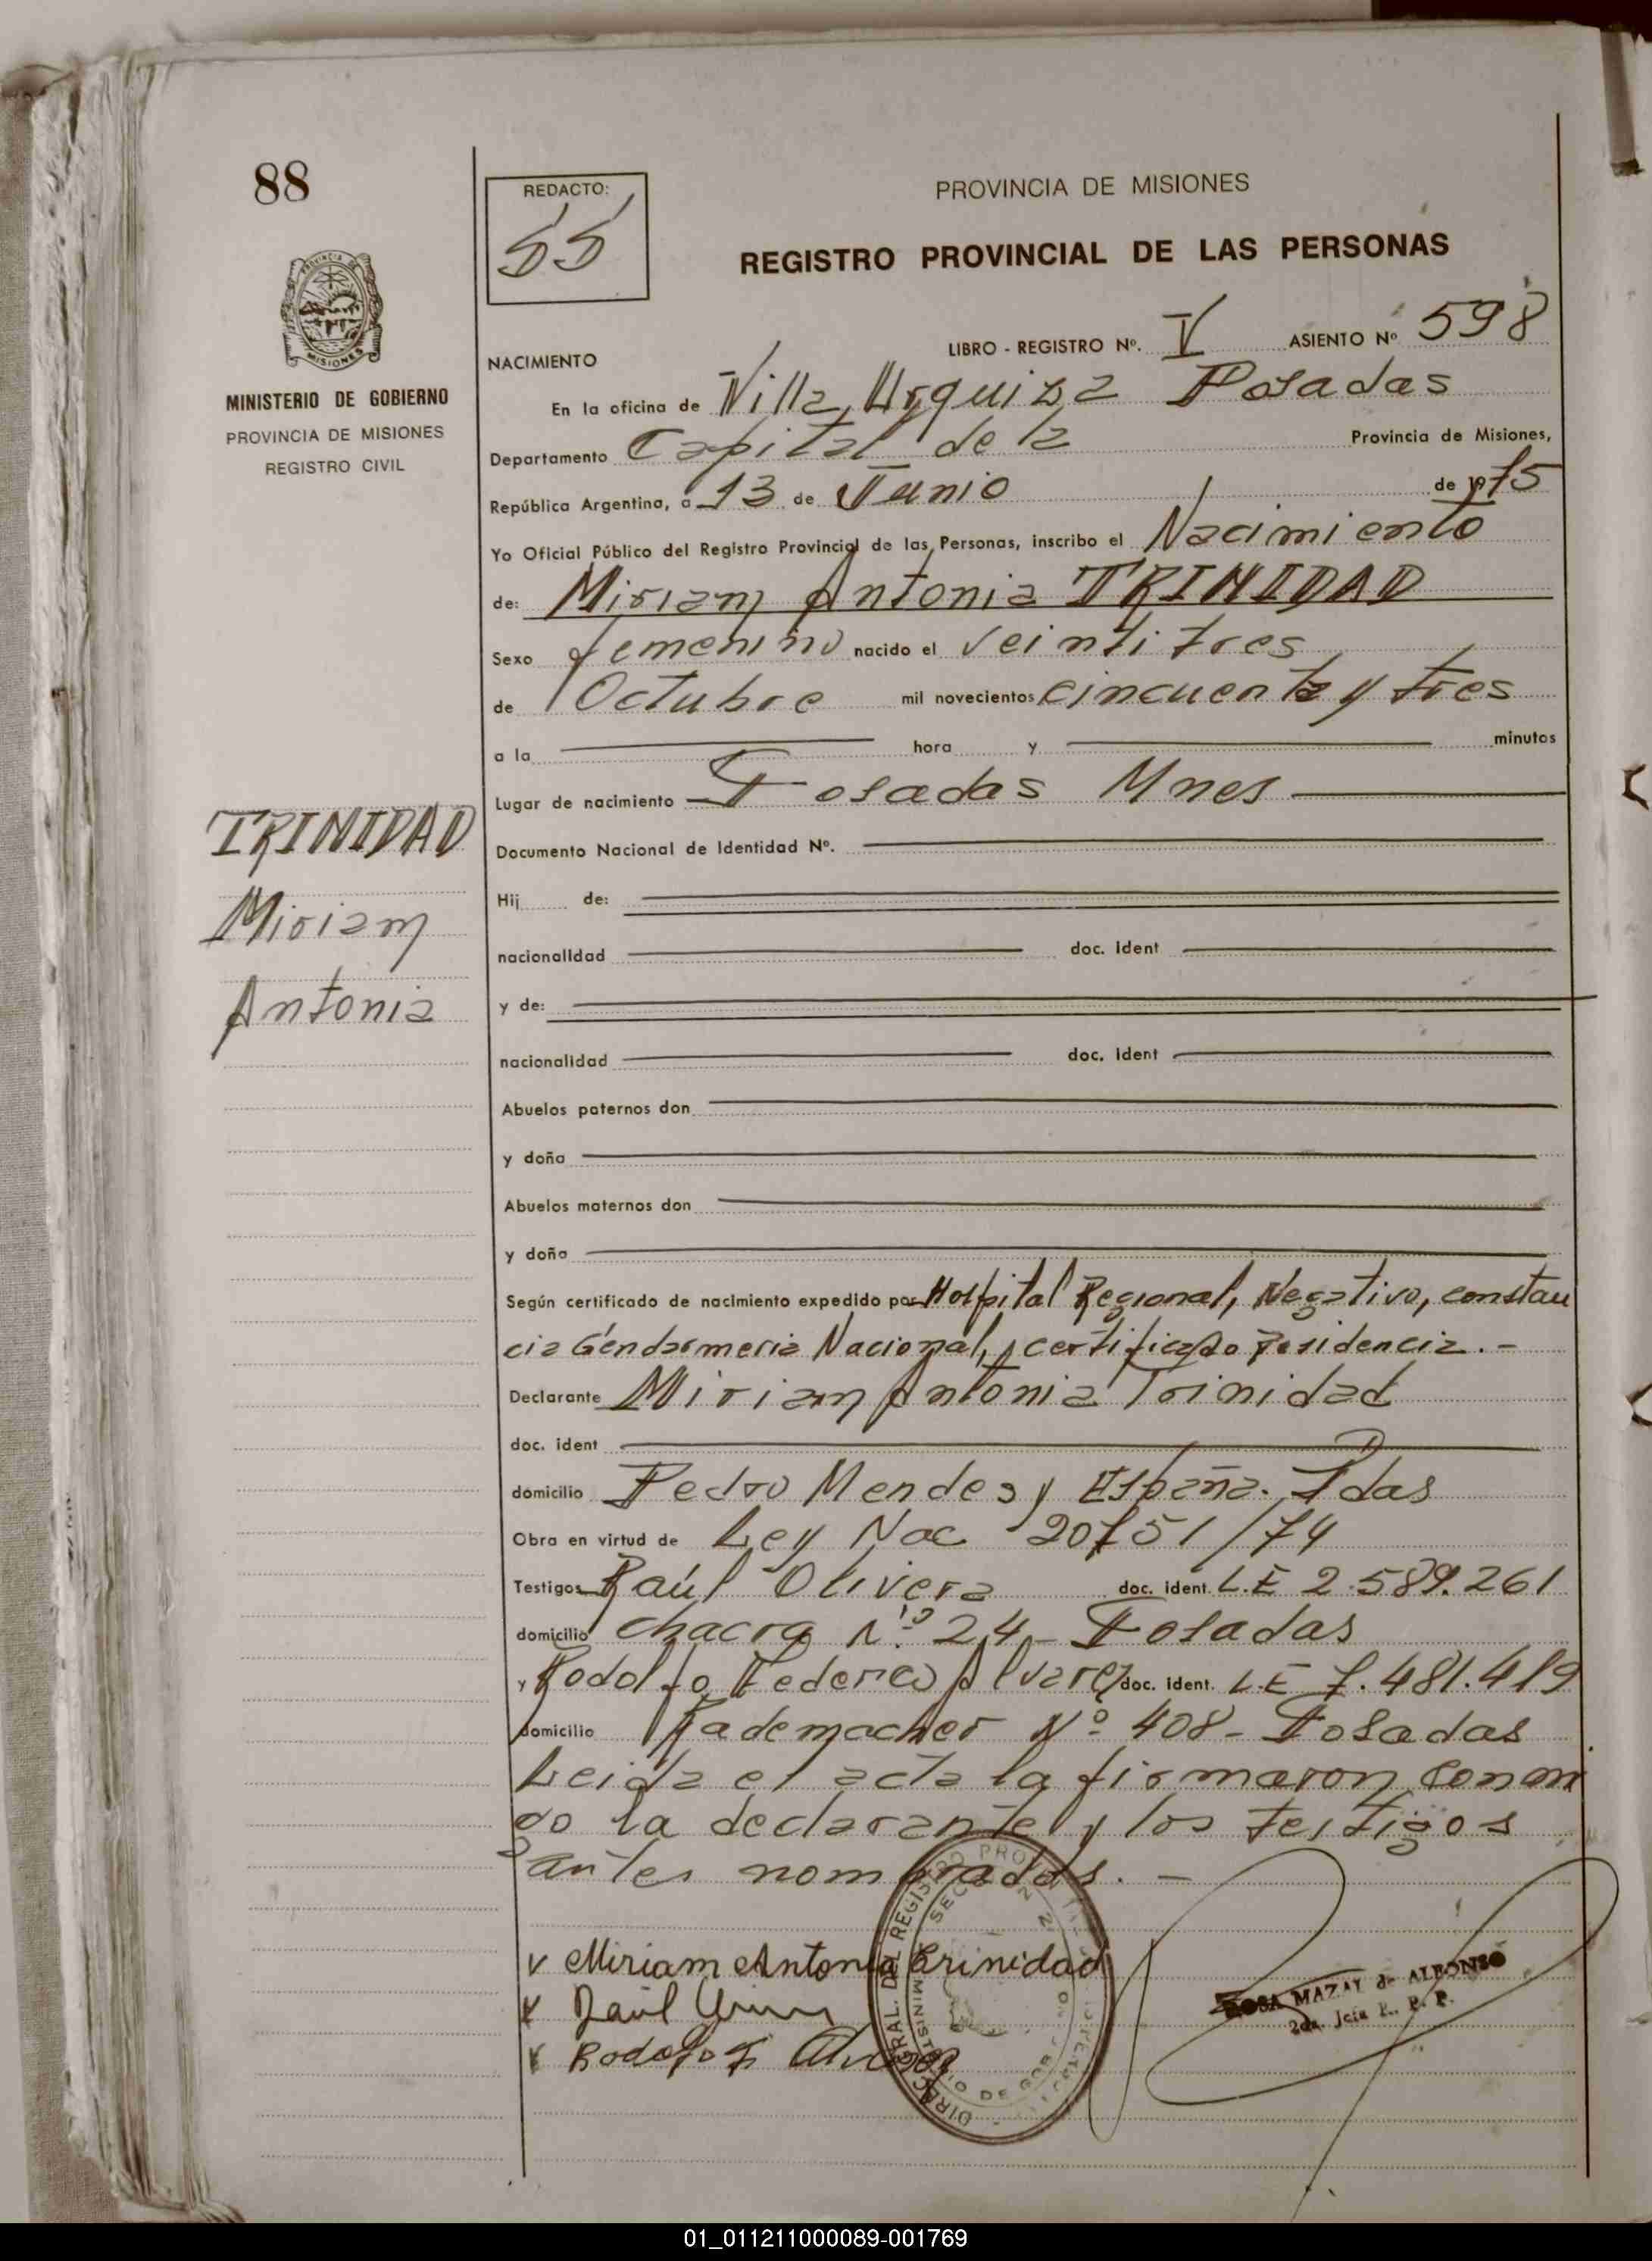 88
REDACTO:
55
PROVINCIA DE MISIONES
REGISTRO PROVINCIAL DE LAS PERSONAS
PROVINCIA DE
MISIONES
MINISTERIO DE GOBIERNO
PROVINCIA DE MISIONES
REGISTRO CIVIL
LIBRO - REGISTRO Nº. V ASIENTO Nº 598
NACIMIENTO
En la oficina de Villa Urquiza Posadas
Departamento Capital de la Provincia de Misiones,
República Argentina, a 13 de Junio de 1975
Yo Oficial Público del Registro Provincial de las Personas, inscribo el Nacimiento
de: Miriam Antonia TRINIDAD
Sexo femenino nacido el veintitres
de Octubre mil novecientos cincuenta y tres
a la hora y minutos
Lugar de nacimiento Posadas Mnes
TRINIDAD
Miriam
Antonia
Documento Nacional de Identidad Nº.
Hij de:
nacionalidad doc. ident
y de:
nacionalidad doc. ident
Abuelos paternos don
y doña
Abuelos maternos don
y doña
Según certificado de nacimiento expedido por Hospital Regional, Negativo, constan
cia Gendarmeria Nacional, certificado Residencia. -
Declarante Miriam Antonia Trinidad
doc. ident
domicilio Pedro Mendes y España. Pdas
Obra en virtud de Ley Nac 20751/74
Testigos Raúl Olivera doc. ident. L.E 2.589.261
domicilio chacra Nº 24 - Posadas
y Rodolfo Federico Alvarez doc. ident. L.E 7.481.419
domicilio Rademacher Nº 408 - Posadas
Leida el acta la firmaron conmi
go la declarante y los testigos
antes nombrados. -
v Miriam Antonia Trinidad
Raúl
Rodolfo F.
DIRAC. GRAL. DEL REGISTRO
MINISTERIO DE GOB
ROSA MAZAL de ALFONSO
2da. Jefa R. P. P.
01_011211000089-001769